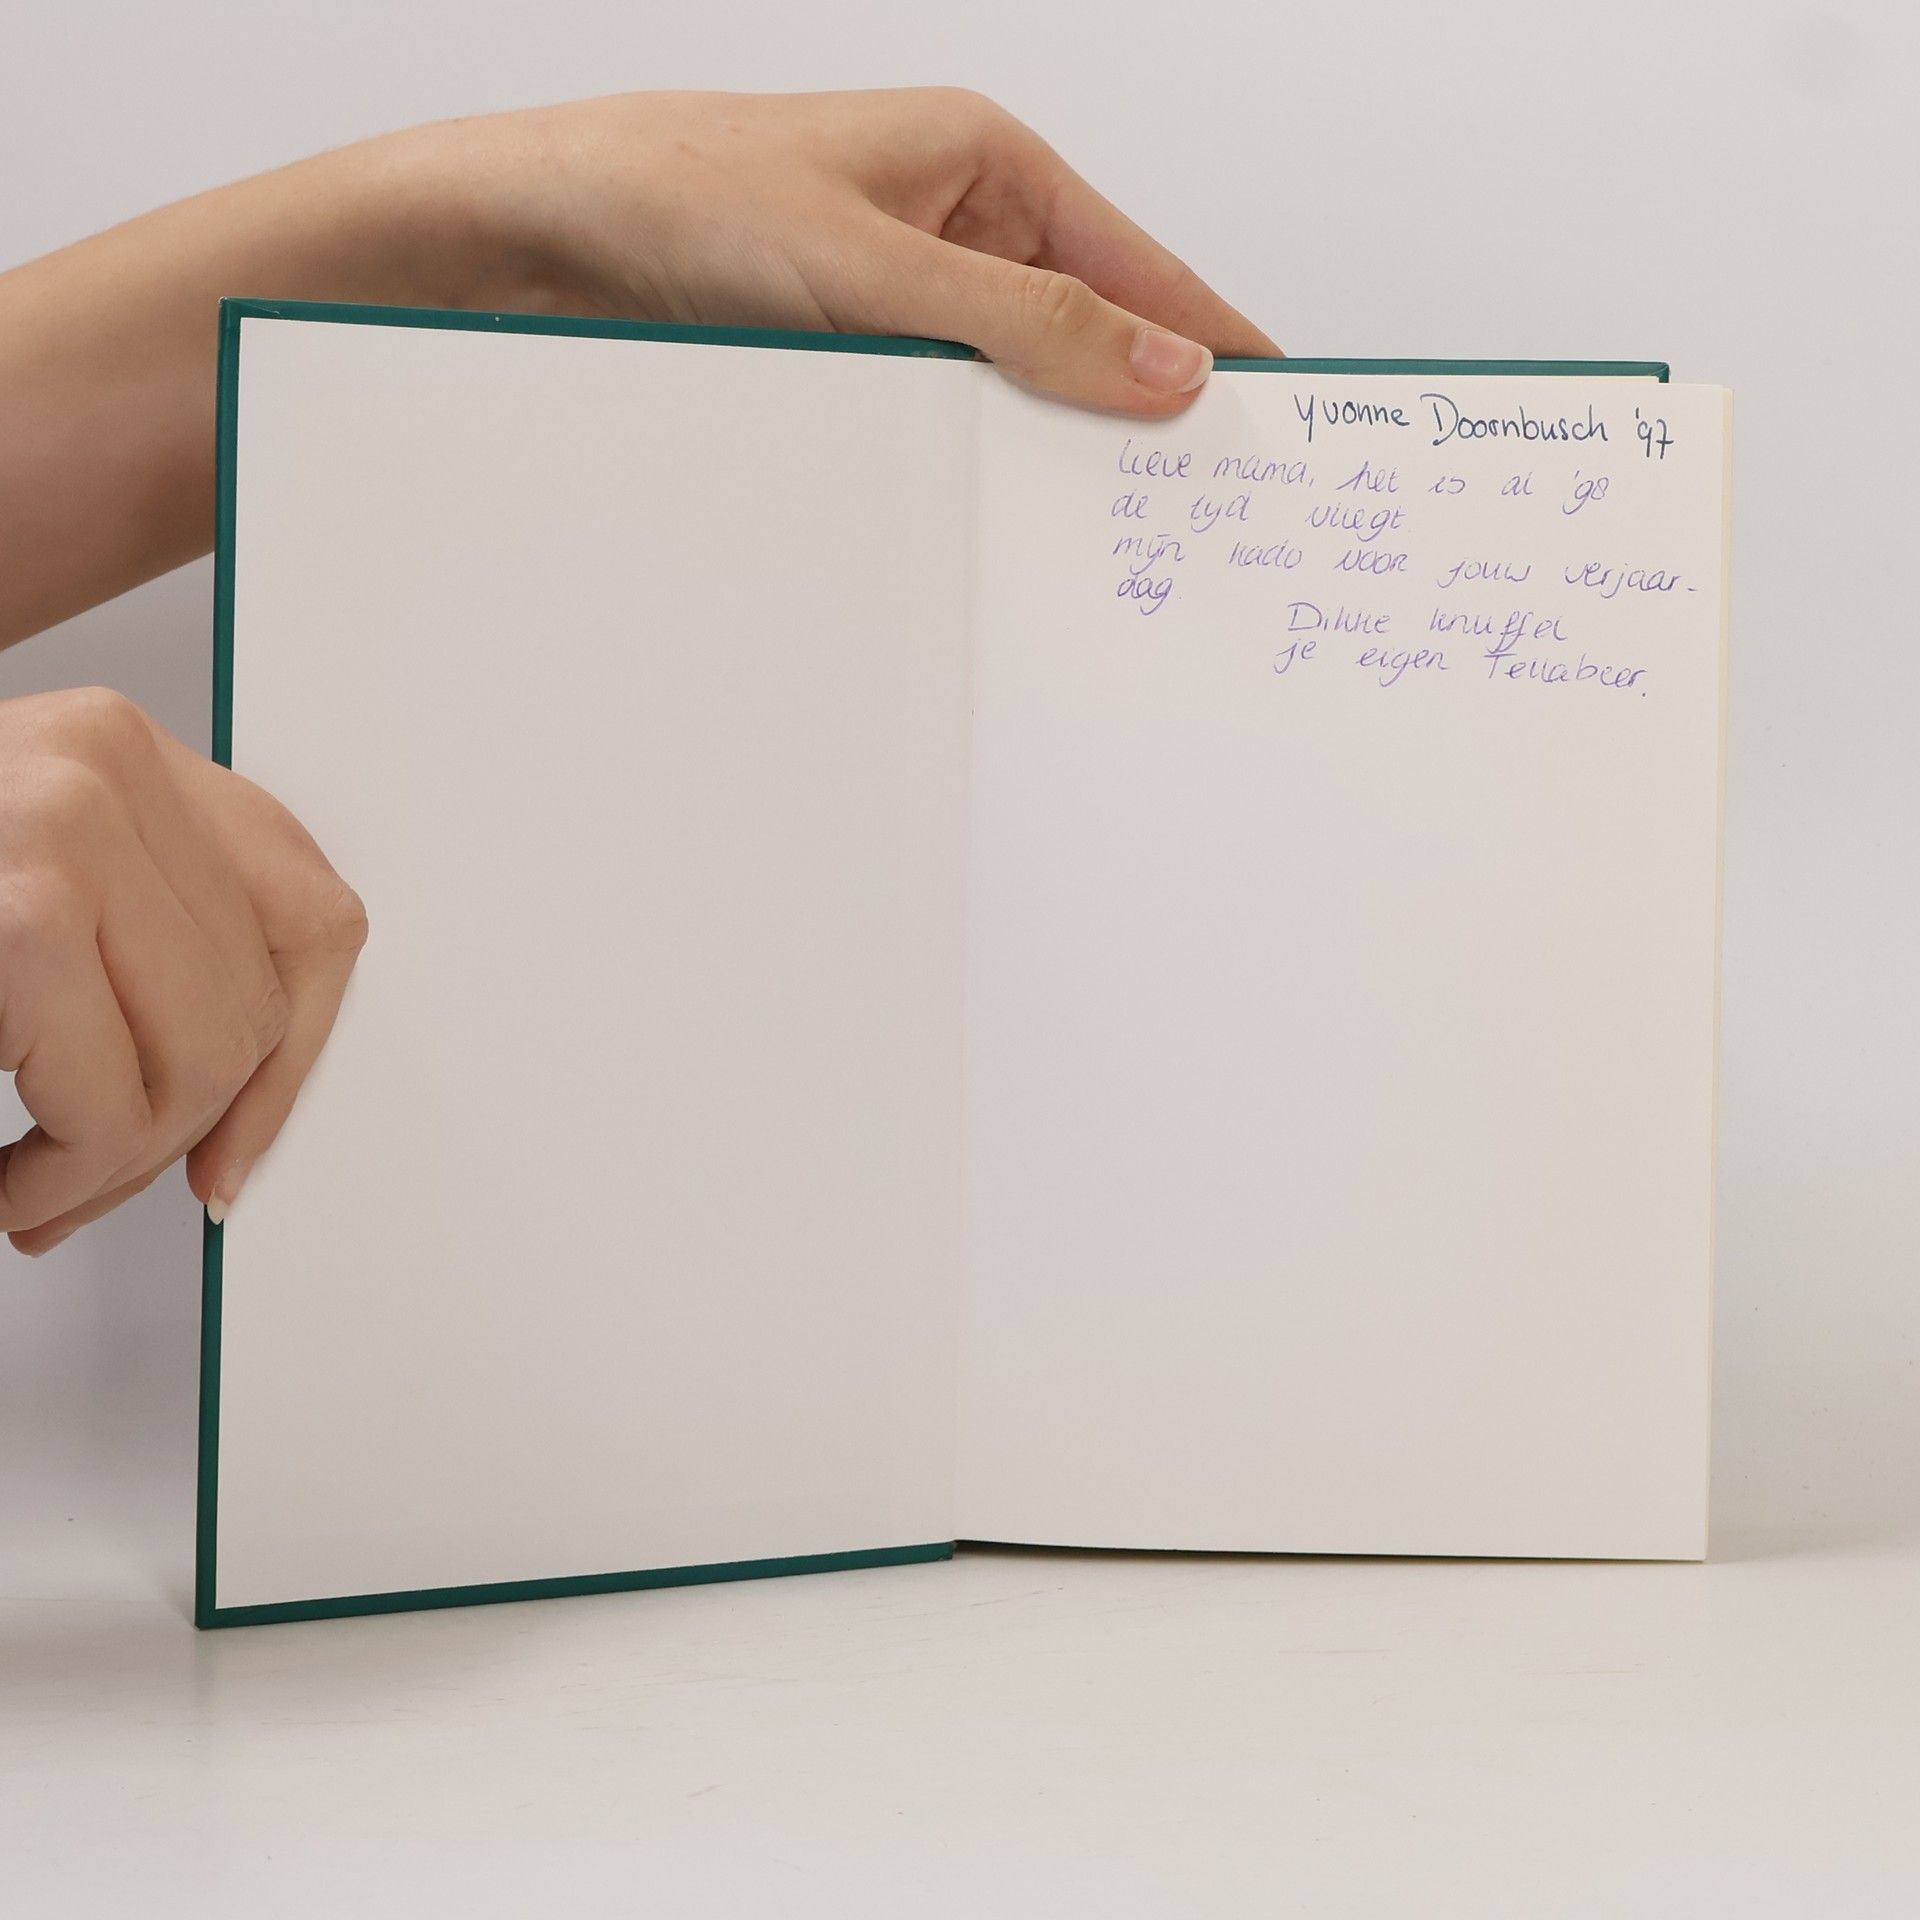 Yvonne Doornbusch '97
lieve mama, het is al '98
de tyd vliegt.
mijn kado voor jouw verjaar-
dag.
Dikke knuffel
je eigen